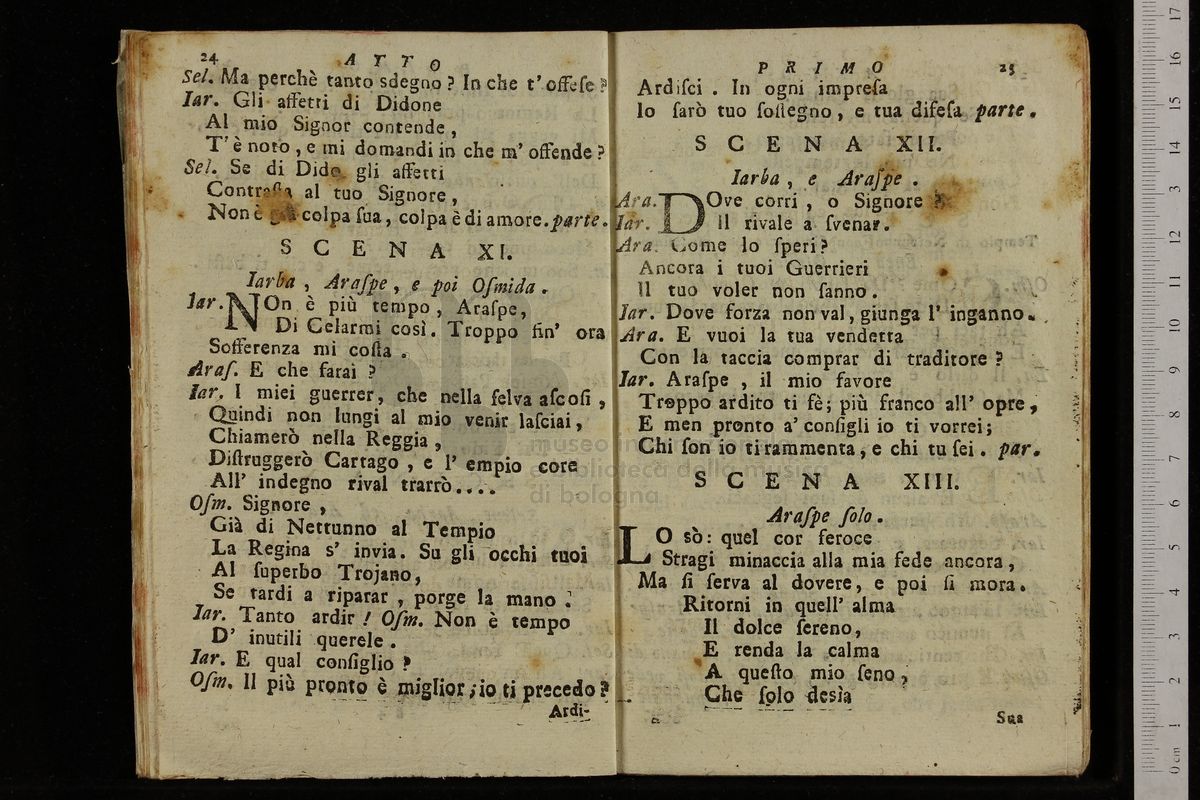 24 ATTO
Sel. Ma perchè tanto sdegno? In che t' offeſe?
Iar. Gli affetti di Didone
Al mio Signor contende,
T' è noto, e mi domandi in che m' offende?
Sel. Se di Dido gli affetti
Contraſta al tuo Signore,
Non è già colpa ſua, colpa è di amore. parte.
SCENA XI.
Iarba, Araſpe, e poi Oſmida.
Iar. NOn è più tempo, Araſpe,
Di Celarmi così. Troppo fin' ora
Sofferenza mi coſta.
Araſ. E che farai?
Iar. I miei guerrer, che nella ſelva aſcoſi,
Quindi non lungi al mio venir laſciai,
Chiamerò nella Reggia,
Diſtruggerò Cartago, e l' empio core
All' indegno rival trarrò....
Oſm. Signore,
Già di Nettunno al Tempio
La Regina s' invia. Su gli occhi tuoi
Al ſuperbo Trojano,
Se tardi a riparar, porge la mano.
Iar. Tanto ardir! Oſm. Non è tempo
D' inutili querele.
Iar. E qual conſiglio?
Oſm. Il più pronto è miglior; io ti precedo?
Ardi-
PRIMO 25
Ardiſci. In ogni impreſa
Io ſarò tuo ſoſtegno, e tua difeſa parte.
SCENA XII.
Iarba, e Araſpe.
Ara. DOve corri, o Signore?
Iar. Il rivale a ſvenar.
Ara. Come lo ſperi?
Ancora i tuoi Guerrieri
Il tuo voler non ſanno.
Iar. Dove forza non val, giunga l' inganno.
Ara. E vuoi la tua vendetta
Con la taccia comprar di traditore?
Iar. Araſpe, il mio favore
Troppo ardito ti fè; più franco all' opre,
E men pronto a' conſigli io ti vorrei;
Chi ſon io ti rammenta, e chi tu ſei. par.
SCENA XIII.
Araſpe ſolo.
LO sò: quel cor feroce
Stragi minaccia alla mia fede ancora,
Ma ſi ſerva al dovere, e poi ſi mora.
Ritorni in quell' alma
Il dolce ſereno,
E renda la calma
A queſto mio ſeno,
Che ſolo desìa
Sua
museo internazionale
e biblioteca della musica
di bologna
0 cm 1 2 3 4 5 6 7 8 9 10 11 12 13 14 15 16 17